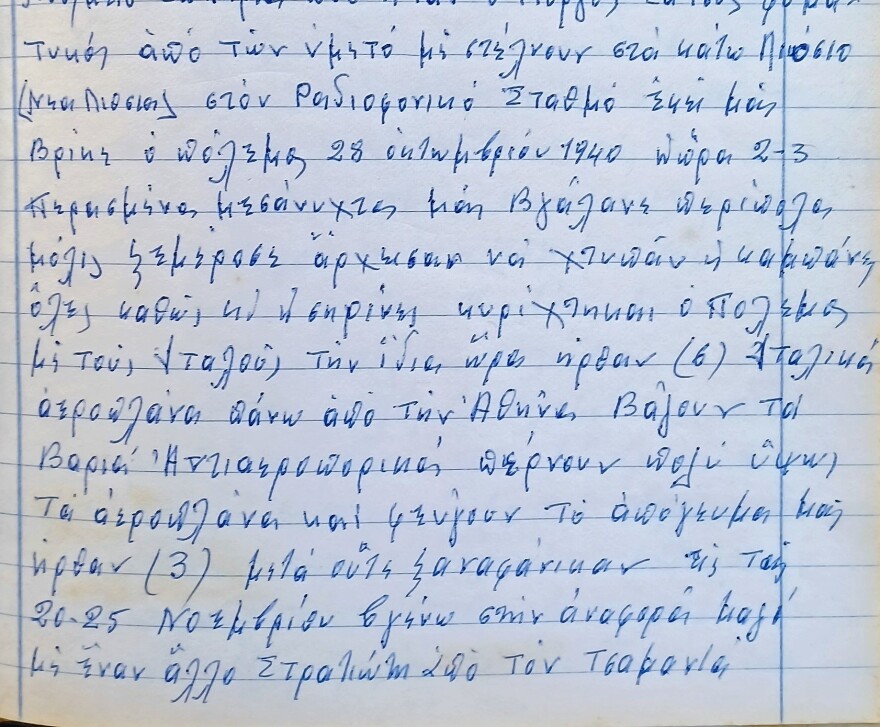 τικός ἀπό τόν ὑμετό μέ στέλνουν στά κάτω Λιόσια
(Νεα Λιόσια) στόν Ραδιοφονικό Σταθμό ἐκεῖ μάς
Βρίκε ὁ πόλεμος 28 ὀκτωμβρίου 1940 ὥρα 2-3
περασμένα μεσάνυχτα μάς Βγάλανε περίπολα
μόλις ξεμέροσε ἄρχεισαν νά χτυπάν ἡ καμπάνες
ὅλες καθώς κέ ἡ σηρίνες κυρίχτηκαι ὁ Πόλεμος
μέ τούς Ἰταλούς τήν ἴδια ὥρα ἠρθαν (6) Ἰταλικά
ἀεροπλάνα πάνω ἀπό τήν Ἀθήνα Βάζουν τά
Βαριά Ἀντιαεροπορικά πέρνουν πολύ ὕψως
Τά ἀεροπλάνα καί φεύγουν τό ἀπόγευμα μάς
ἠρθαν (3) μετά οὔτε ξαναφάνικαν τίς
20-25 Νοεμβρίου βγένω στήν ἀναφορά μαζί
μέ ἕναν ἄλλο Στρατιώτη ἀπό τόν